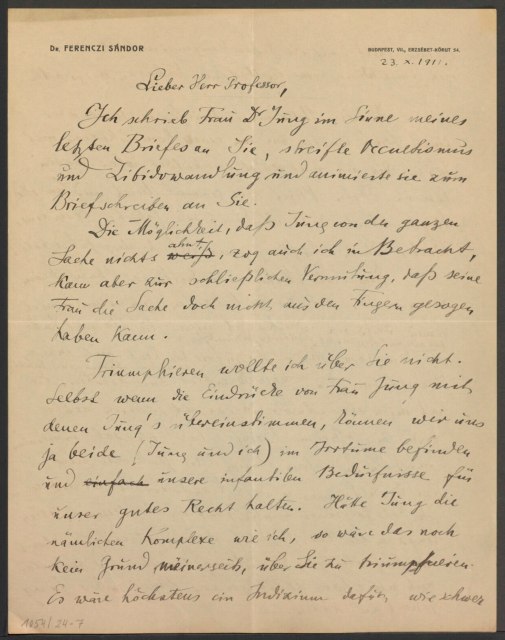 Dr. FERENCZI SÁNDOR
BUDAPEST, VII., ERZSÉBET-KÖRUT 54.
23. X. 1911.
Lieber Herr Professor,
Ich schrieb Frau Dr Jung im Sinne meines
letzten Briefes an Sie, streifte Occultismus
und Libidowandlung und animierte sie zum
Briefschreiben an Sie.
Die Möglichkeit, daß Jung von der ganzen
Sache nichts weiß ahnt, zog auch ich in Betracht,
kam aber zur schließlichen Vermutung, daß seine
Frau die Sache doch nicht aus den Fingern gesogen
haben kann.
Triumphieren wollte ich über Sie nicht.
Selbst wenn die Eindrücke von Frau Jung mit
denen Jung's übereinstimmen, können wir uns
ja beide (Jung und ich) im Irrtume befinden
und einfach unsere infantilen Bedürfnisse für
unser gutes Recht halten. Hätte Jung die
nämlichen Komplexe wie ich, so wäre das noch
kein Grund meinerseits, über Sie zu triumphieren.
Es wäre höchstens ein Indizium dafür, wie schwer
1054/24-7